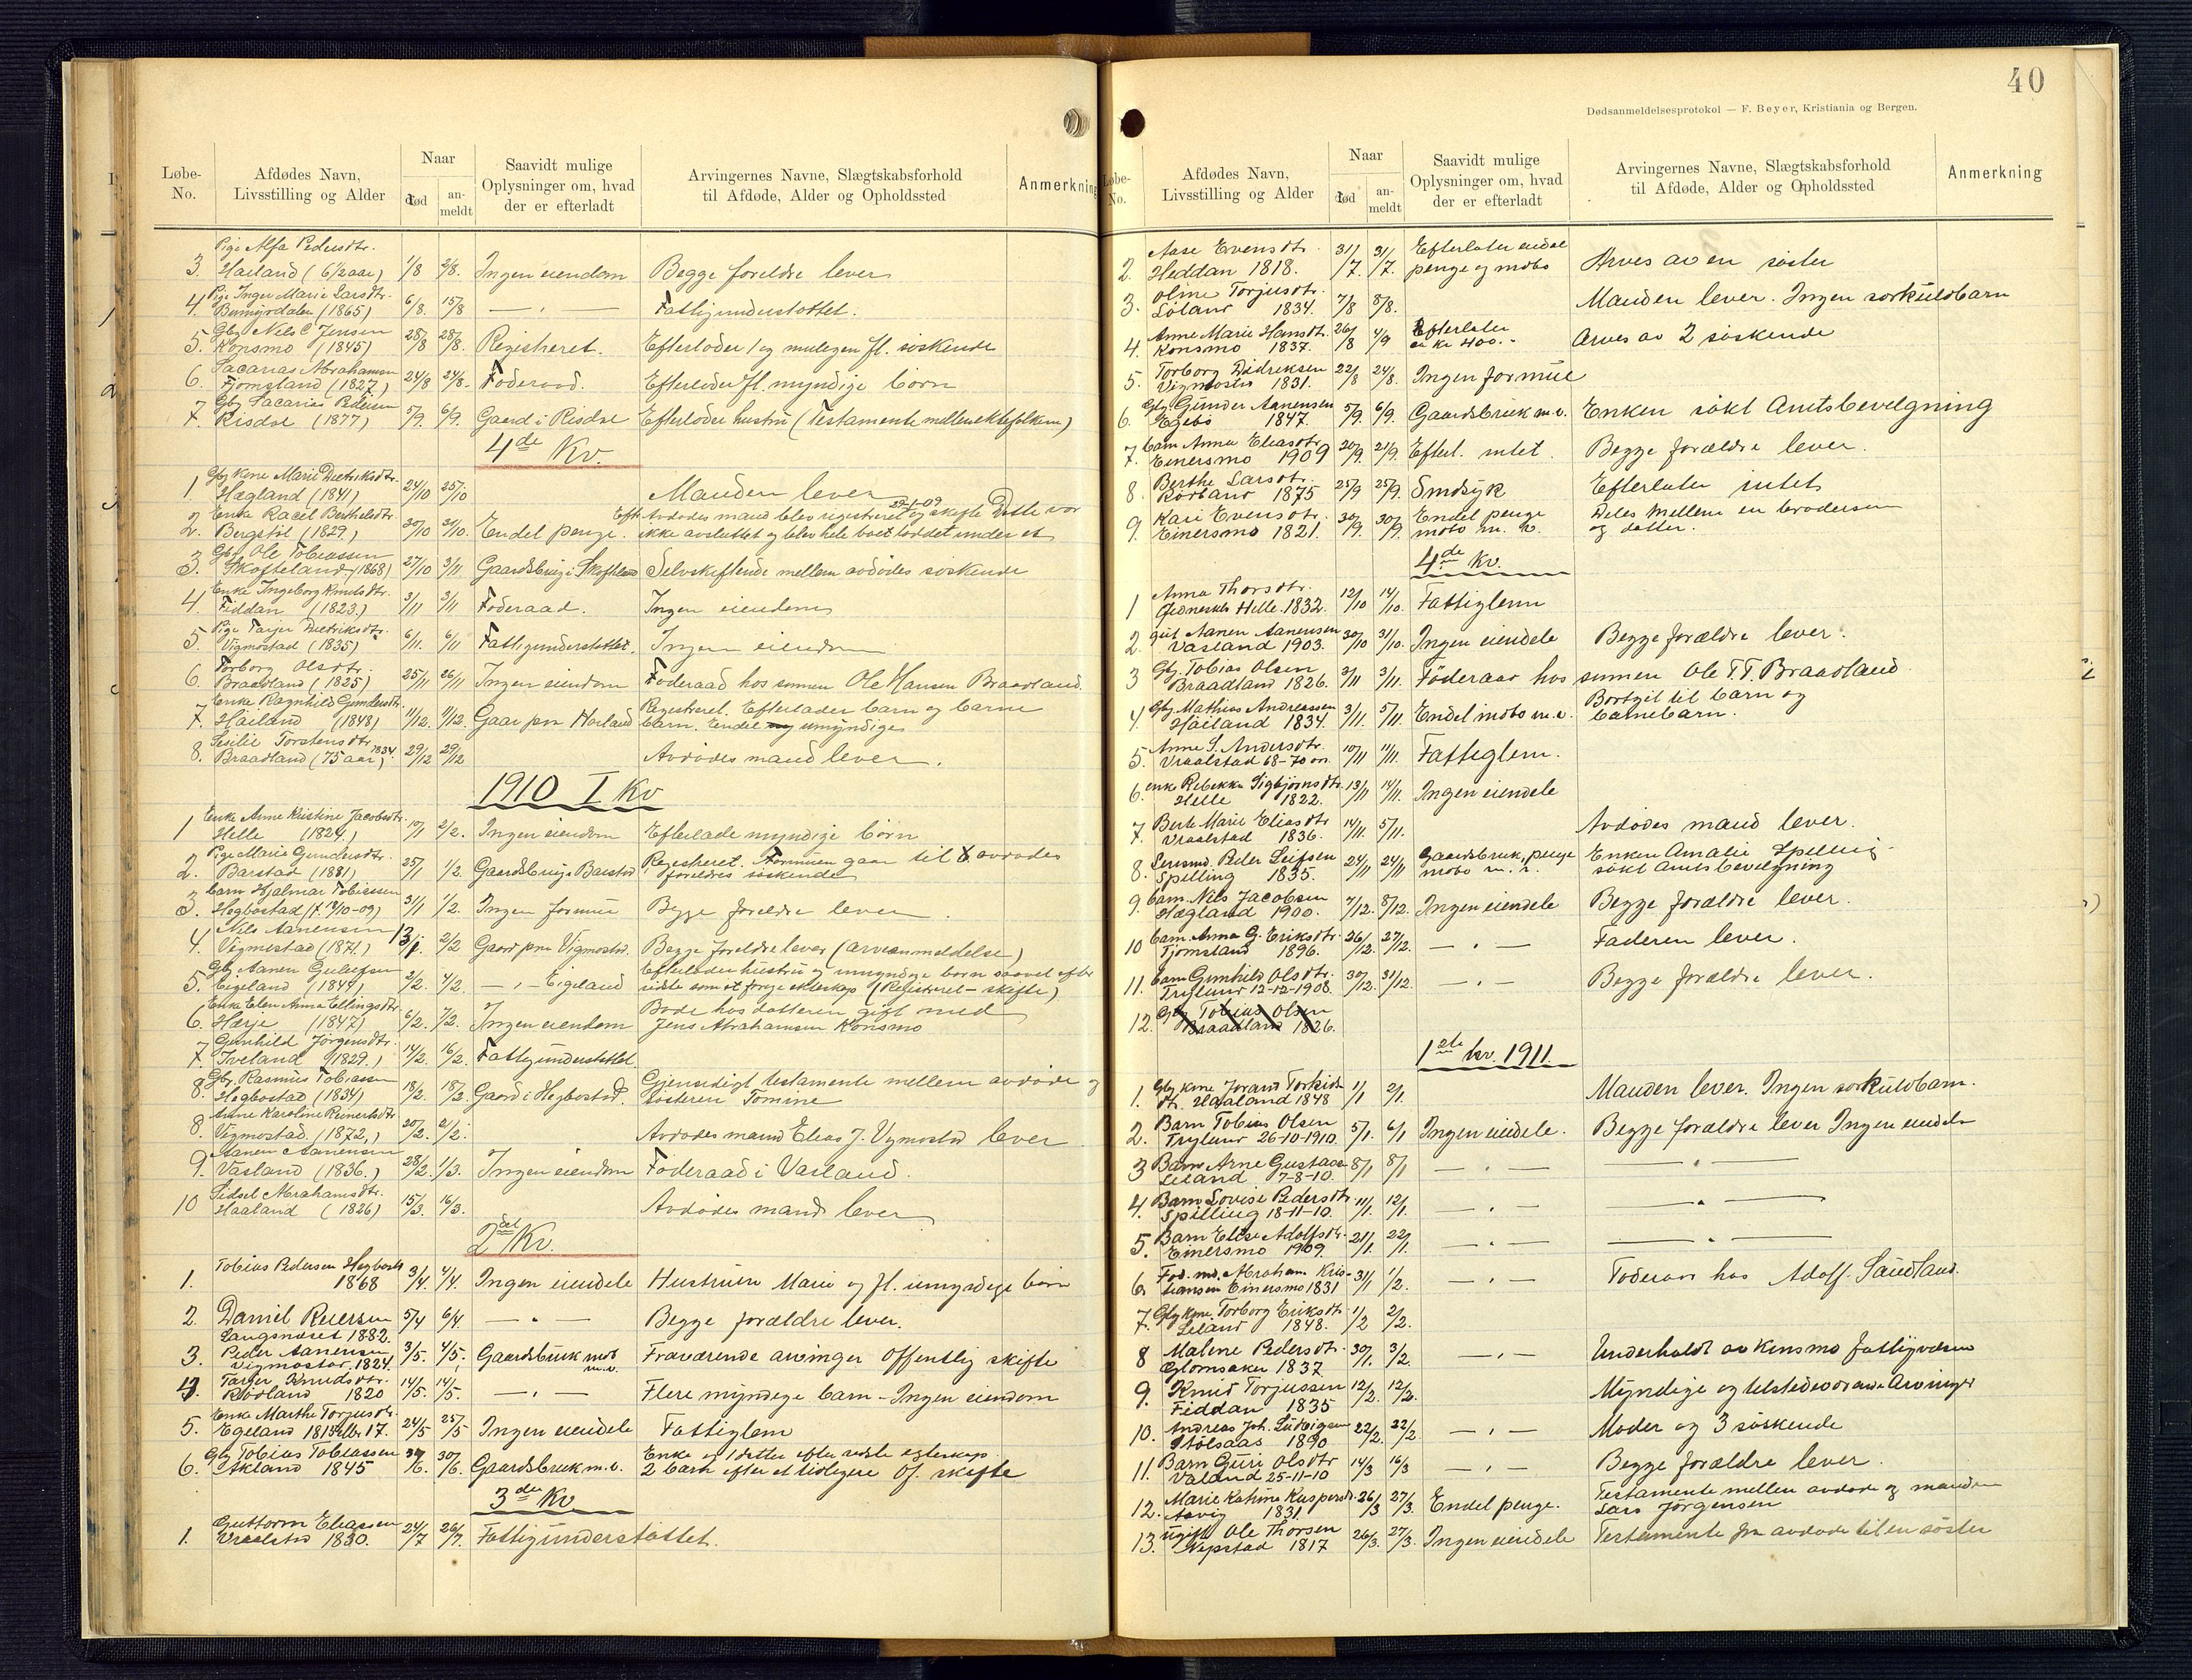 40
Dødsanmeldelsesprotokol — F. Beyer, Kristiania og Bergen.
Løbe-No.
Afdødes Navn, Livsstilling og Alder
Naar
død
an-meldt
Saavidt mulige Oplysninger om, hvad der er efterladt
Arvingernes Navne, Slægtskabsforhold til Afdøde, Alder og Opholdssted
Anmerkning
Pige Alfa Pedersdtr.
3. Hailand (6 1/2 aar) 1/8 2/8. Ingen eiendom Begge foreldre lever
Pige Inger Marie Larsdtr.
4. (1865) 6/8. 15/8 — " — Fattigunderstøttet.
Gbr Nils C Jensen
5. Konsmo (1845) 28/8 28/8. Registreret. Efterlader 1 og mulegen fl. søskende
Sacarias Abrahamsen
6. Fjomsland (1827) 24/8 24/8. Føderaad. Efterlader fl. myndige børn
Gbr Sacarias Pedersen
7. Risdal (1877) 5/9. 6/9. Gaard i Risdal Efterlader hustru (Testamente mellem ektefolkene)
4de Kv.
Gbr Kone Marie Diedriksdtr.
1 Hægland (1841) 24/10 25/10 Manden lever
Enke Racil Bertheldtr 29-1-09
2. Bergstøl (1829) 30/10 31/10. Endel penge. Efter Avdødes mand blev registreret og skifte Dette var
ikke avsluttet og blev hele boet loddet under et
Gbr Ole Tobiassen
3. Skofteland (1868) 27/10 3/11 Gaardsbrug i Skofteland Selvskiftende mellem avdødes søskende
Enke Ingeborg Knudsdtr.
4. Fiddan (1823.) 3/11 3/11 Føderaad. Ingen eiendom
Pige Tarjer Diedriksdtr.
5 Vigmostad (1835) 6/11. 6/11 Fattigunderstøttet. Ingen eiendom
Torborg Olsdtr.
6. Braadland (1825) 25/11 26/11 Ingen eiendom Føderaad hos sønnen Ole Hansen Braadland.
Enke Ragnhild Gundersdtr.
7. Hailand (1848) 11/12. 11/12. Gaar paa Hailand Registreret. Efterlader barn og barne
barn. Endel umyndige
Sesilie Torstensdtr. 1834
8. Braadland (75 aar) 29/12 29/12 Avdødes mand lever.
1910 I Kv
Enke Anne Kristine Jacobsdtr.
1 Helle (1824) 10/1 2/2. Ingen eiendom Efterlade myndige børn
Pige Marie Gundersdtr.
2. Barstad (1881) 25/1 1/2. Gaardsbrug i Barstad Registreret. Formuen gaar til avdødes
foreldres søskende
barn Hjalmar Tobiassen
3. Hegbostad (f. 19/10-09) 31/1 1/2. Ingen formue Begge foreldre lever.
Nils Aanensen
4. Vigmostad (1871.) 13/1. 2/2 Gaard paa Vigmostad. Begge foreldre lever (arveanmeldelse)
Gbr Aanen Guleifsen
5 Eigeland (1844) 2/2. 4/2. — " — Eigeland Efterlader hustru og umyndige børn saavel efter
sidste som et forrige ekteskap (Registreret - skifte)
Enke Elen Anna Ellingsdtr
6. Harje (1847) 6/2. 7/2. Ingen eiendom Bode hos datteren gift med
Jens Abrahamsen Konsmo
Gunhild Jørgensdtr.
7. Iveland (1829.) 14/2. 16/2. Fattigunderstøttet
Gbr. Rasmus Tobiassen
8. Hegbostad (1834) 18/2. 18/2. Gaard i Hegbostad. Gjensidigt testamente mellem avdøde og
søsteren Tomine
Anne Karoline Reinertsdtr
8. Vigmostad. (1872,) 20/2. 21/2. Avdødes mand Elias J. Vigmostad lever
Aanen Aanensen
9. Vasland (1836.) 28/2. 1/3. Ingen eiendom Føderaad i Vasland.
Sidsel Abrahamsdtr.
10 Haaland (1826) 15/3. 16/3. Avdødes mand lever
2det Kv.
Tobias Pedersen Hegbostad
1. 1868 3/4. 4/4. Ingen eiendele Hustruen Marie og fl. umyndige børn
2. Daniel Reiersen 5/4 6/4 — " — Begge forældre lever.
Langemæset 1882.
Peder Aanensen
3. Vigmostad. 1824. 3/5. 4/5. Gaardsbruk m.v. Fraværende arvinger Offentlig skifte
Tarjer Knudsdtr.
4. Rødland 1820 14/5. 14/5. — " — Flere myndige barn - Ingen eiendom
Enke Marthe Torjusdtr.
5. Egeland 1815 17. 24/5 25/5 Ingen eiendele Fattiglem
Gbr Tobias Tobiassen
6. Akland 1845 30/6. 30/6. Gaardsbruk m.v. Enke og 1 datter efter sidste egteskap.
2 barn efter et tidligere Of. skifte
3de Kv
Guttorm Eliassen
1. Vraalstad 1830. 24/7 26/7. Fattigunderstøttet.
Løbe-No.
Afdødes Navn, Livsstilling og Alder
Naar
død
an-meldt
Saavidt mulige Oplysninger om, hvad der er efterladt
Arvingernes Navne, Slægtskabsforhold til Afdøde, Alder og Opholdssted
Anmerkning
Aase Evensdtr.
2. Heddan 1818. 31/7. 31/7. Efterlater endel penge og indbo Arves av en søster
Oline Torjusdtr.
3. Løland 1834. 7/8 8/8. Manden lever. Ingen særkuldbarn
Anne Marie Hansdtr.
4. Konsmo 1837. 26/8 4/9 Efterlater ca kr 400.- Arves av 2 søskende
Torborg Didriksen
5. Vigmostad 1831. 22/8 24/8. Ingen formue
Gbr. Gunder Aanensen
6. Egebø 1847. 5/9. 6/9. Gaardsbruk m.v. Enken søkt Amtsbevilgning
barn Anna Eliasdtr.
7. Einersmo 1909 20/9. 21/9. Efterl. intet. Begge forældre lever.
Berthe Larsdt.
8. Rødland 1875 25/9 25/9. Sindsyk Efterlater intet
Kari Evensdtr.
9. Einersmo 1821. 30/9. 30/9. Endel penge indbo m. v. Deles mellem en brodersøn
og datter.
4de Kv.
Anna Thorsdtr.
1 Helle. 1832. 12/10 14/10. Fattiglem
gut Aanen Aanensen
2. Vasland 1903. 30/10 31/10. Ingen eiendele Begge forældre lever.
Gbr. Tobias Olsen
3 Braadland 1826. 3/11 3/11. Føderaad hos sønnen Ole T.T. Braadland
Gbr Mathias Andreassen
4. Hailand 1834. 3/11. 5/11. Endel indbo m.v. Bortgit til barn og
barnebarn.
Anne S. Andersdtr.
5. Vraalstad 68-70 aar. 10/11 11/11. Fattiglem.
enke Rebekka Sigbjørnsdtr
6. Helle 1822. 13/11 14/11. Ingen eiendele
Berte Marie Eliasdtr
7. Vraalstad 1836. 14/11. 5/11. Avdødes mand lever.
Peder Leifsen
8. Spilling 1835. 24/11 24/11 Gaardsbruk, penge indbo m. v. Enken Amalie Spilling
søkt Amtsbevilgning
barn. Nils Jacobsen
9. Hægland 1900. 7/12. 8/12. Ingen eiendele Begge forældre lever.
barn. Anna G. Eriksdtr.
10 Fjomsland 1896. 26/12. 27/12. — " — Faderen lever.
barn Gunhild Olsdtr.
11. Trylund 12-12-1908. 30/12. 31/12. — " — Begge forældre lever.
Gbr Tobias Olsen
12. Braadland 1826.
1ste kv. 1911.
Gbr kone Jorand Torkids
1. dt. Haaland 1848 1/1 2/1. Manden lever. Ingen særkuldbarn.
Barn Tobias Olsen
2. Trylund 26-10-1910. 5/1. 6/1 Ingen eiendele. Begge forældre lever Ingen eiendele
Barn Arne Gustavs
3 Leland 7-8-10. 8/1 8/1 — " — — " —
Barn Lovise Pedersdtr
4. Spilling 18-11-10. 11/1. 12/1. — " — — " —
Barn Elise Adolfsdtr.
5. Einersmo 1909. 21/1. 22/1. — " — — " —
Fød. md. Abraham Kris-
6. tiansen Einersmo 1831 31/1 1/2. — " — Føderaad hos Adolf Saudland.
Gbr kone. Torborg Eriksdtr.
7. Leland 1848. 1/2 2/2.
Malene Pedersdt.
8 Glomsaker 1837 30/1. 3/2. — " — Underholdt av Konsmo fattigvæsen
Knut Torjussen
9. Fiddan 1835 12/2. 12/2. Myndige og tilstedeværende Arvinger
Andreas Joh. Ludvigsen
10. Stølsaas 1890 22/2. 22/2 — " — Moder og 3 søskende
Barn Guri Olsdtr
11. Valand 25-11-10 14/3 16/3 — " — Begge forældre lever.
Marie Katrine Kaspersdtr.
12. Aavig 1831. 26/3 27/3. Endel penge. Testamente mellem avdøde og manden
Lars Jørgensen
ugift Ole Thorsen
13. Nepstad 1817 26/3. 27/3. Ingen eiendele Testamente fra avdøde til en søster